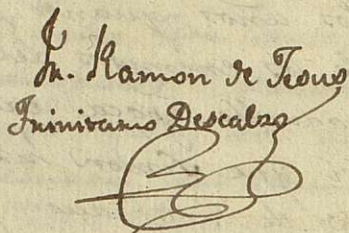 Fr. Ramon de Jesus
Trinitario Descalzo